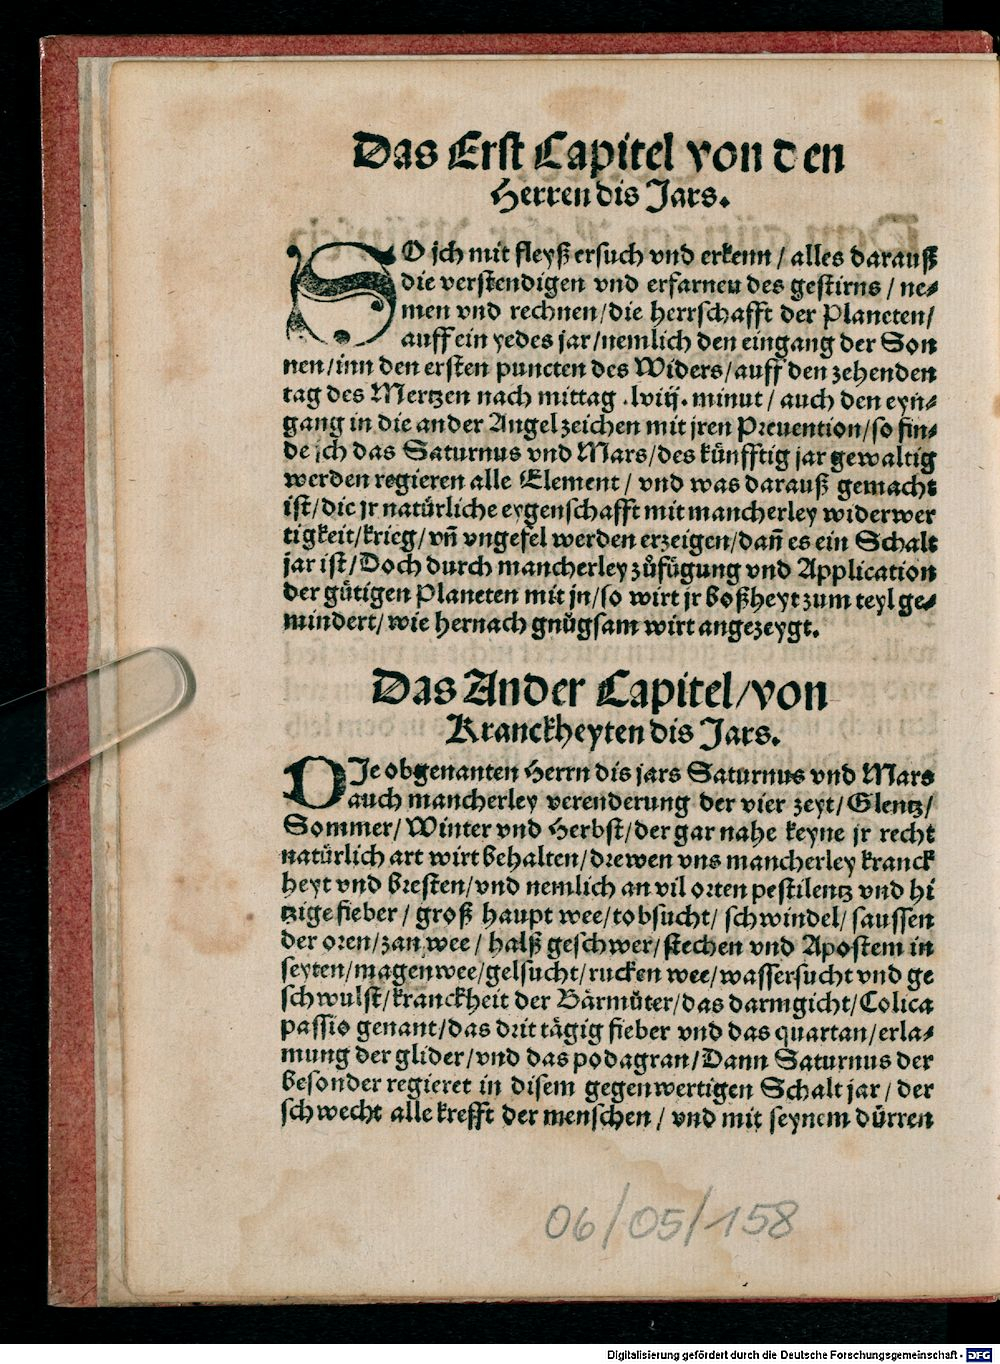 Das Erst Capitel von den
Herren dis Jars.
SO jch mit fleyß ersuch vnd erkenn / alles darauß
die verstendigen vnd erfarneu des gestirns / ne⸗
men vnd rechnen/die herrschafft der Planeten/
auff ein yedes jar/nemlich den eingang der Son
nen/inn den ersten puncten des Widers/auff den zehenden
tag des Mertzen nach mittag .lviij. minut / auch den eyn⸗
gang in die ander Angel zeichen mit jren Preuention/so fin⸗
de jch das Saturnus vnd Mars/des künfftig jar gewaltig
werden regieren alle Element / vnd was darauß gemacht
ist/die jr natürliche eygenschafft mit mancherley widerwer
tigkeit/krieg/vñ vngefel werden erzeigen/dañ es ein Schalt
jar ist/Doch durch mancherley zůfügung vnd Application
der gütigen Planeten mit jn/so wirt jr boßheyt zum teyl ge⸗
mindert/wie hernach gnůgsam wirt angezeygt.
Das Ander Capitel/von
Kranckheyten dis Jars.
DJe obgenanten Herrn dis jars Saturnus vnd Mars
auch mancherley verenderung der vier zeyt/Glentz/
Sommer/Winter vnd Herbst/der gar nahe keyne jr recht
natürlich art wirt behalten/drewen vns mancherley kranck
heyt vnd bresten/vnd nemlich an vil orten pestilentz vnd hi
tzige fieber / groß haupt wee/tobsucht/ schwindel/ saussen
der oren/zan wee / halß geschwer/stechen vnd Apostem in
seyten/magenwee/gelsucht/rucken wee/wassersucht vnd ge
schwulst/kranckheit der Bärmůter/das darmgicht/Colica
passio genant/das drit tägig fieber vnd das quartan/erla⸗
mung der glider/vnd das podagran/Dann Saturnus der
besonder regieret in disem gegenwertigen Schalt jar / der
schwecht alle krefft der menschen / vnd mit seynem dürren
06/05/158
Digitalisierung gefördert durch die Deutsche Forschungsgemeinschaft - DFG